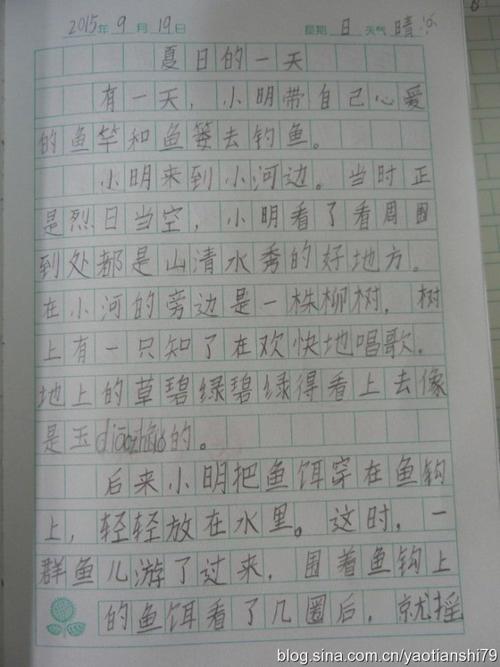 2015年9月19日 星期日 天气晴
夏日的一天
有一天，小明带自己心爱
的鱼竿和鱼篓去钓鱼。
小明来到小河边。当时正
是烈日当空，小明看了看周围
到处都是山清水秀的好地方。
在小河的旁边是一株柳树，树
上有一只知了在欢快地唱歌。
地上的草碧绿碧绿得看上去像
是玉diāozhuó的。
后来小明把鱼饵穿在鱼钩
上，轻轻放在水里。这时，一
群鱼儿游了过来，围着鱼钩上
的鱼饵看了几圈后，就摇
blog.sina.com.cn/yaotianshi79